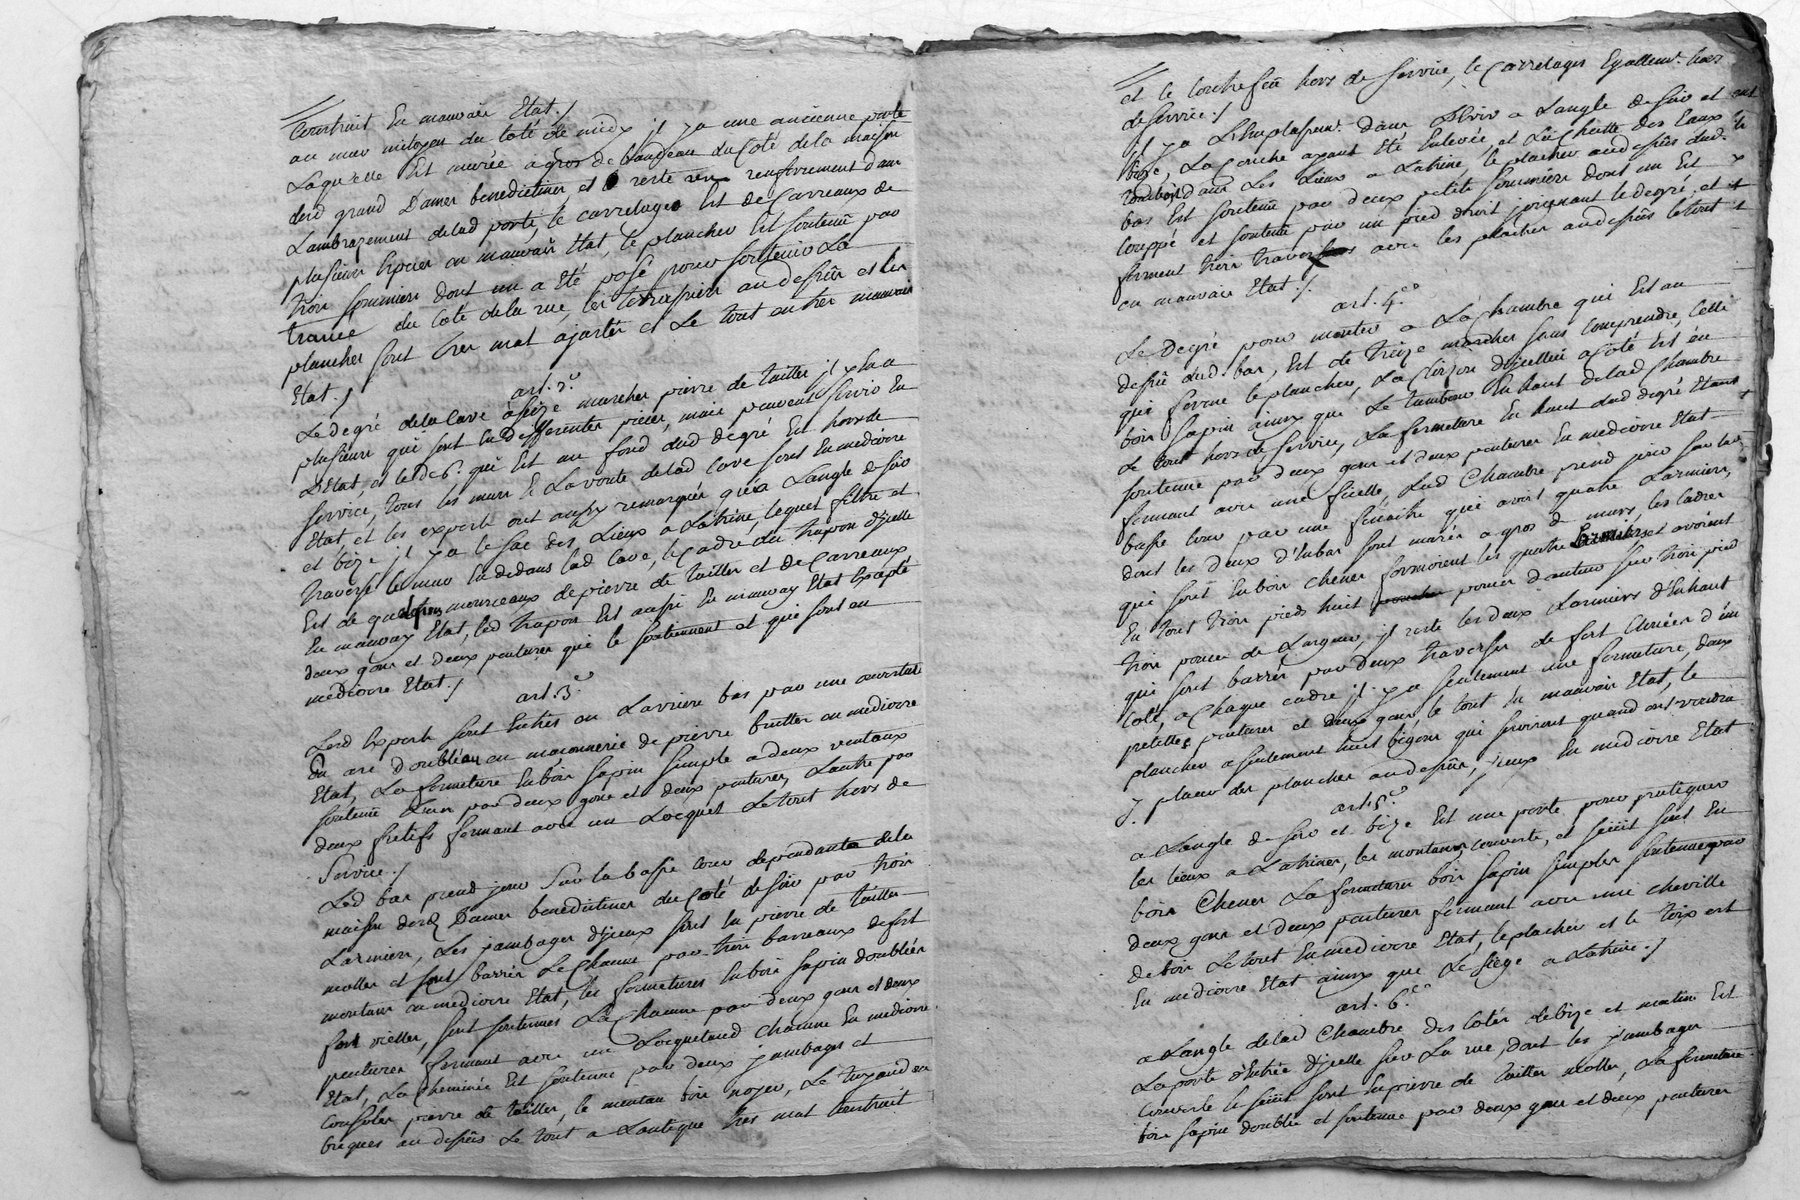 Construit En mauvais Etat./
au mur mitoyen du coté de midy il ya une ancienne porte
Laquelle Est murée a gros de bandeau du Coté de la maison
desd grand Dames benedictines et reste un renfoncement dans
Lambrazement delad porte, le carrelages Est de Carreaux de
plusieurs Especes en mauvais Etat, le plancher Est soutenu par
trois sommiers dont un a Eté posé pour soutenir La
trame du Coté dela rue, les terrassures au dessus et les
planches sont tres mal ajustés et Le tout en tres mauvais
Etat./
art. 2.e
Le degré dela Cave a seize marches pierre de tailles il y en a
plusieurs qui sont En Differentes pieces, mais peuvent servir En
L'Etat, et led 6.e qui Est au fond dud degré Est hors de
service, tous les murs Et La voute delad Cave sont En mediocre
Etat et les experts ont aussy remarqués qu'a Langle de soir
et bize il y a le sac des Lieux a Latrine, lequel filtre et
traverse le mur En dedans lad Cave, le Cadre du trapon d'jcelle
Est de quelques mourceaux de pierre de tailles et de Carreaux
En mauvay Etat, led trapon Est aussi En mauvay Etat Excepté
deux gons et deux pentures qui le soutiennent et qui sont en
mediocre Etat./
art. 3.e
Lesd Experts sont Entrés en Larriere bas par une ouverture
En arc doubleau en maçonnerie de pierre brutte en mediocre
Etat, La fermeture En bois sapin simple a deux ventaux
soutenu L'un par deux gons et deux pentures, Lautre par
deux fretifs fermant avec un Locquet Le tout hors de
Service./
Led bas prend jour Sur la basse Cour dependante dela
maison desd Dames benedictines du Coté de soir par trois
Larmiers, Les jambages d'jceux sont En pierre de tailles
molles et sont barrés Le Chacun par trois barreaux de fert
montans en mediocre Etat, les fermetures En bois sapin doublées
fort vielles, sont soutenues La Chacune par deux gons et deux
pentures fermant avec un Locquetaud Chacune En mediocre
Etat, La Cheminée Est soutenue par deux jambages et
Consoles pierre de tailles, le manteau bois noyer, Le tuyaud en
briques au dessus Le tout a Lantique tres mal Construit
et le Contrefeu hors de service, le Carrelages Egallem.t hors
de service./
Il y a L'Emplassem.t d'un Evier a Langle de soir et
bize, La Conche ayant Eté Enlevée, et La Chutte des Eaux
tomboit dans Les Lieux a Latrine, le plancher au dessus dud
bas Est soutenu par deux petits sommiers dont un Est
Couppé et soutenu par un pied droit joignant le degré, et
forment trois travers avec les planches au dessus le tout
en mauvais Etat./
art. 4.e
Le degré pour monter a La Chambre qui Est au
dessus dud bas, Est de treize marches sans Comprendre, Celle
qui forme le plancher, La Cloison d'jcelluy a Coté Est En
bois sapin ainsy que Le tambour En haut delad Chambre
Le tout hors de service, La fermeture En haut dud degré Etant
soutenue par deux gons et deux pentures En mediocre Etat
fermant avec une ficelle, Lad Chambre prend jour sur la
basse Cour par une fenaitre qui avoit quatre Larmiers,
dont les deux d'Enbas sont murés a gros de murs, les Cadres
qui sont En bois chenes formoient les quatre Larmiers et avoient
En tout trois pieds huit pouces d'auteur sur trois pied
trois pouces de Largeur, il reste les deux Larmiers d'Enhaut
qui sont barrés par deux traverses de fert Clouées d'un
Coté, a Chaque Cadre il y a seulement une fermeture, deux
petittes pentures et deux gons, le tout En mauvais Etat, le
plancher a seulement huit bigons qui serviront quand on voudra
y placer des planches au dessus, jceux En mediocre Etat
art. 5.e
a Langle de soir et bize Est une porte pour pratiquer
les Lieux a Latrines, les montans, couverte, et seüil sont En
bois Chenes La fermeture bois sapin simple soutenue par
deux gons et deux pentures fermant avec une cheville
de bois Le tout En mediocre Etat, le plancher et le toix est
En mediocre Etat ainsy que Le siege a Latrine./
art. 6.e
a Langle delad Chambre des Cotés de bize et matin Est
La porte d'Entrée d'jcelle sur La rue, dont les jambages
Couverte le seüil sont En pierre de tailles molles, La fermeture
bois sapin doublée et soutenue par deux gons et deux pentures